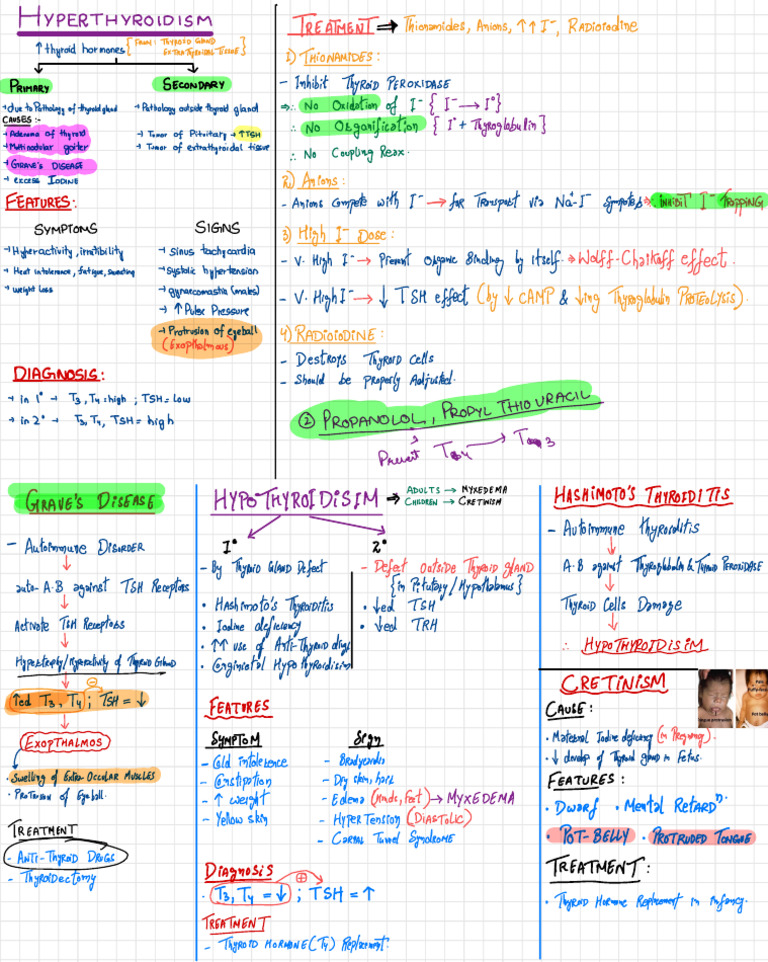 HYPERTHYROIDISM
↑ thyroid hormones { FROM: THYROID GLAND
EXTRATHYROIDAL TISSUE }
PRIMARY
→ due to Pathology of thyroid gland
CAUSES :-
→ Adenoma of thyroid
→ Multinodular goiter
→ GRAVE'S DISEASE
→ excess IODINE
SECONDARY
→ Pathology outside thyroid gland
→ Tumor of Pituitary → ↑TSH
→ Tumor of extrathyroidal tissue
FEATURES:
SYMPTOMS
→ Hyperactivity, irritibility
→ Heat intolerence, fatigue, sweating
→ weight loss
SIGNS
→ Sinus tachycardia
→ Systolic hypertension
→ gynaecomastia (males)
→ ↑ Pulse Pressure
→ Protrusion of eyeball
(Exopthalmous)
DIAGNOSIS:
→ in 1° → T3, T4 = high ; TSH = low
→ in 2° → T3, T4, TSH = high
TREATMENT ⇒ Thionamides, Anions, ↑↑ I⁻, Radioiodine
1) THIONAMIDES :
- Inhibit THYROID PEROXIDASE
⇒ ∴ No Oxidation of I⁻ { I⁻ → I° }
∴ No Organification { I° + Thyroglobulin }
∴ No Coupling Reax.
2) Anions :
- Anions compete with I⁻ → for Transport via Na⁺-I⁻ Symporter → inhibit I⁻ Trapping
3) High I⁻ Dose :
- V. High I⁻ → Prevent Organic Binding by itself. → Wolff-Chaikoff effect.
- V. High I⁻ → ↓ TSH effect (by ↓ cAMP & ↓ing Thyroglobulin PROTEOLYSIS).
4) RADIOIODINE :
- Destroys Thyroid Cells
- Should be Properly Adjusted.
② PROPANOLOL, PROPYL THIOURACIL
Prevent T4 → T3
GRAVE'S DISEASE
- Autoimmune DISORDER
auto-A.B against TSH Receptors
Activate TSH Receptors
Hypertrophy/Hyperactivity of Thyroid Gland
↑ed T3, T4 ; TSH = ↓
EXOPTHALMOS
• Swelling of Extra Occular Muscles
• Protrusion of Eyeball.
TREATMENT
- ANTI-THYROID DRUGS
- Thyroidectomy
HYPOTHYROIDISIM ⇒ ADULTS → MYXEDEMA
CHILDREN → CRETINISM
1°
- By THYROID GLAND Defect
• Hashimoto's Thyroiditis
• Iodine deficiency
• ↑↑ use of Anti-Thyroid drugs
• Conginietal Hypothyroidisim
2°
- Defect outside Thyroid GLAND
{in Pitutary / Hypothalamus}
• ↓ed TSH
• ↓ed TRH
FEATURES
SYMPTOM
- Cold intolerence
- Constipation
- ↑ weight
- Yellow skin
Sign
- Bradycardia
- Dry skin, hair
- Edema (Hands, Feet) → MYXEDEMA
- HYPERTension (DIASTOLIC)
- Carpal Tunnel Syndrome
Diagnosis
• T3, T4 = ↓ ; TSH = ↑
TREATMENT
- THYROID HORMONE (T4) Replacement.
HASHIMOTO'S THYROIDITIS
- Autoimmune thyroiditis
A.B against Thyroglobulin & THYROID PEROXIDASE
Thyroid Cells Damage
∴ HYPOTHYROIDISIM
CRETINISM
CAUSE :
• Maternal Iodine deficiency (in Pregnancy).
• ↓ develop of Thyroid gland in Fetus.
FEATURES :
• Dwarf • Mental Retardⁿ.
• POT-BELLY • PROTRUDED TONGUE
TREATMENT :
• Thyroid Hormone Replacement in infancy.